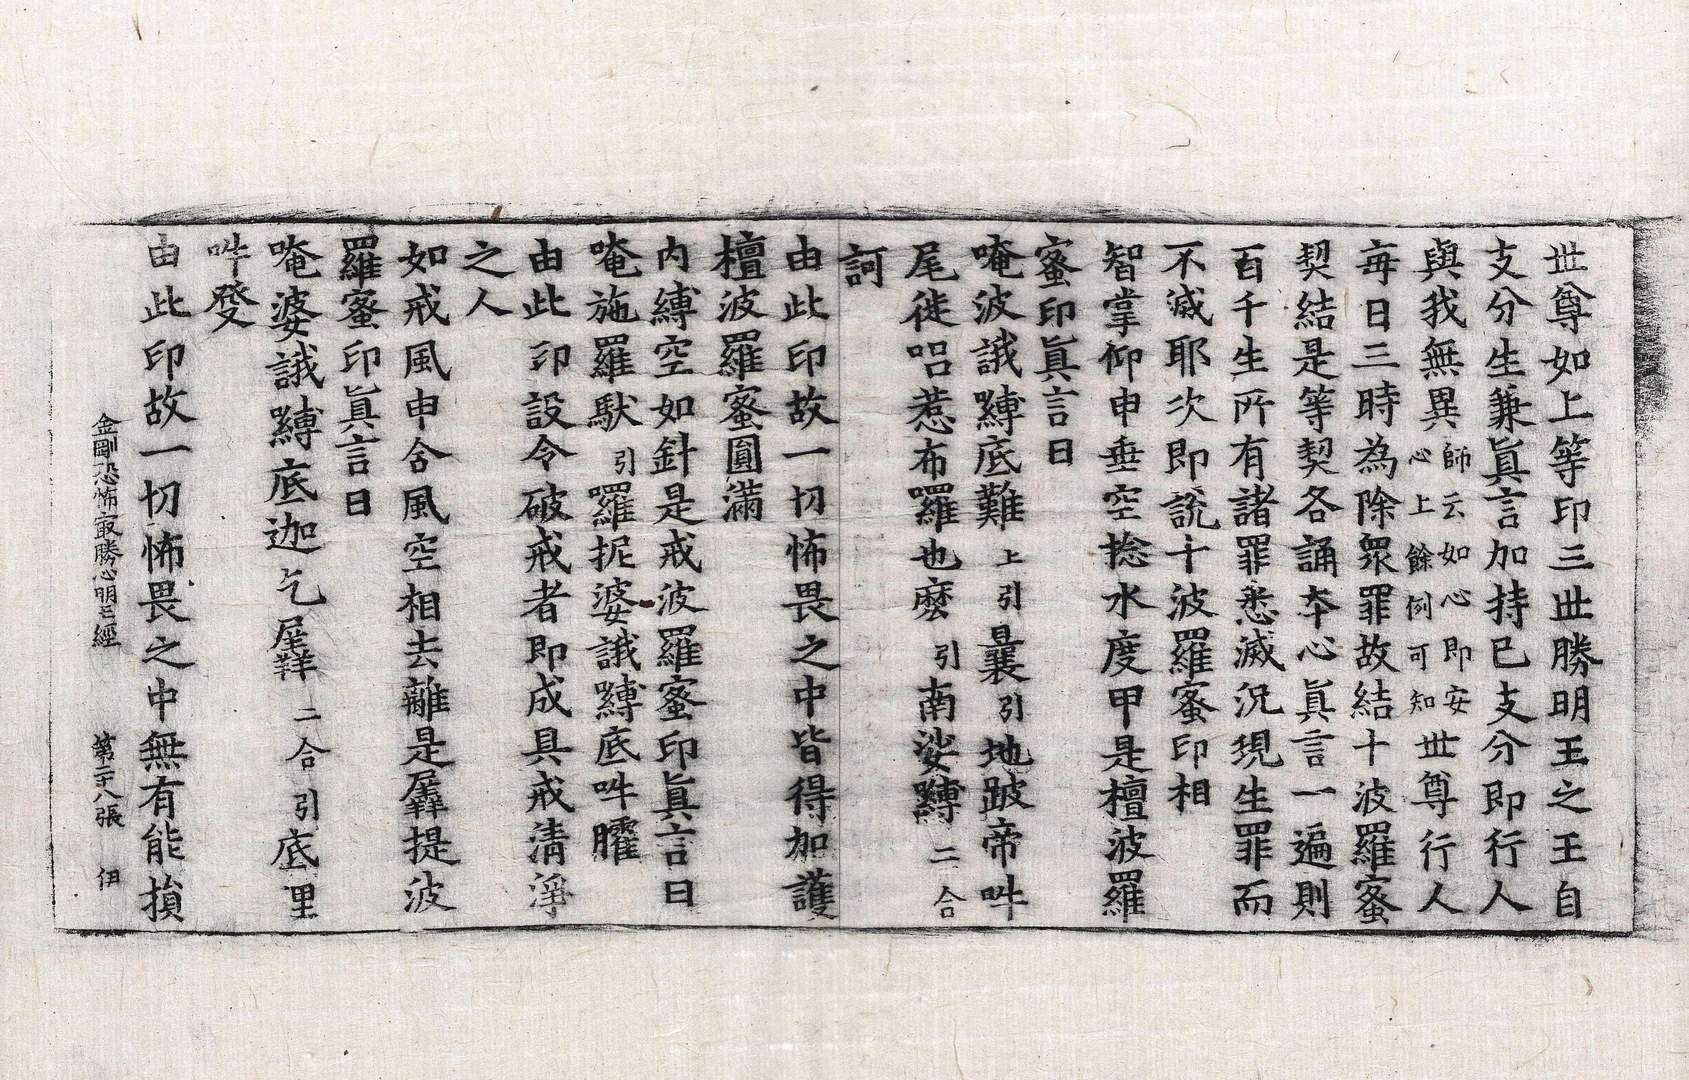 世尊如上等印三世勝明王之王自
支分生兼眞言加持已支分即行人
與我無異師云如心心即安心上餘例可知世尊行人
每日三時為除衆罪故結十波羅蜜
契結是等契各誦本心眞言一遍則
百千生所有諸罪悉滅況現生罪而
不滅耶次即說十波羅蜜印相
智掌仰申垂空捻水度甲是檀波羅
蜜印眞言曰
唵波誐嚩底難上引曩引地跛帝吽
尾徙呂惹布囉也麼引南娑嚩二合
訶
由此印故一切怖畏之中皆得加護
檀波羅蜜圓滿
内縛空如針是戒波羅蜜印眞言曰
唵施羅馱引囉抳婆誐嚩底吽㘕
由此印設令破戒者即成具戒清淨
之人
如戒風申合風空相去離是羼提波
羅蜜印眞言曰
唵婆誐嚩底迦乞羼二合引底里
吽發
由此印故一切怖畏之中無有能損
金剛恐怖最勝心明王經 第二十八張 伊